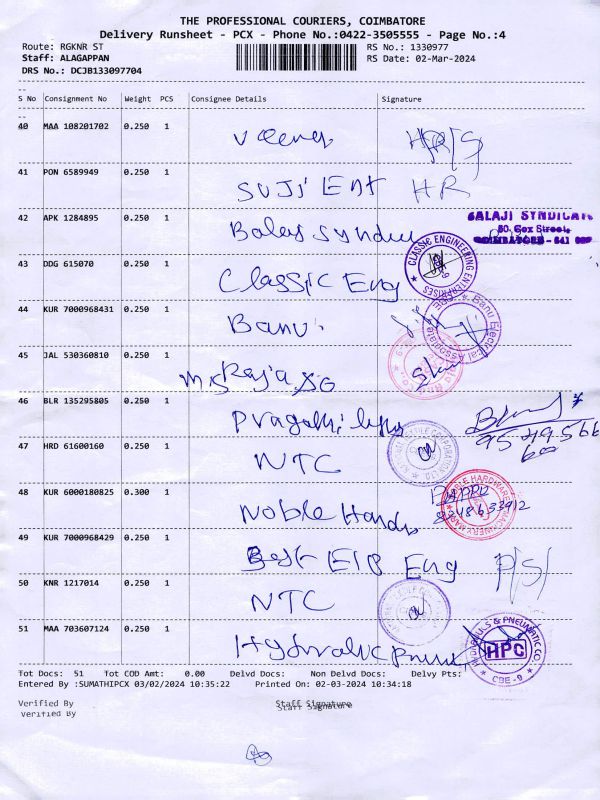 THE PROFESSIONAL COURIERS, COIMBATORE
Delivery Runsheet - PCX - Phone No.:0422-3505555 - Page No.:4
Route: RGKNR ST RS No.: 1330977
Staff: ALAGAPPAN RS Date: 02-Mar-2024
DRS No.: DCJB133097704
S No Consignment No Weight PCS Consignee Details Signature
40 MAA 108201702 0.250 1 Veena
41 PON 6589949 0.250 1 SUJI Ent HR
42 APK 1284895 0.250 1 Balaji Syndi
BALAJI SYNDICATE
50, Gox Street,
COIMBATORE - 641 009
43 DDG 615070 0.250 1 Classic Eng
CLASSIC ENGINEERING ENTERPRISES
44 KUR 7000968431 0.250 1 Banu
Banu Electrical Associate
45 JAL 530360810 0.250 1 Raja
46 BLR 135295805 0.250 1 Pragathi
47 HRD 61600160 0.250 1 NTC
48 KUR 6000180825 0.300 1 Noble Hands
NOBLE HARDWARE MACHINERY MART
49 KUR 7000968429 0.250 1 Eng P/S/
50 KNR 1217014 0.250 1 NTC
51 MAA 703607124 0.250 1 Hydraulic
& PNEUMATIC CO. HPC CBE - 9
Tot Docs: 51 Tot COD Amt: 0.00 Delvd Docs: Non Delvd Docs: Delvy Pts:
Entered By :SUMATHIPCX 03/02/2024 10:35:22 Printed On: 02-03-2024 10:34:18
Verified By Staff Signature
Verified By Staff Signature